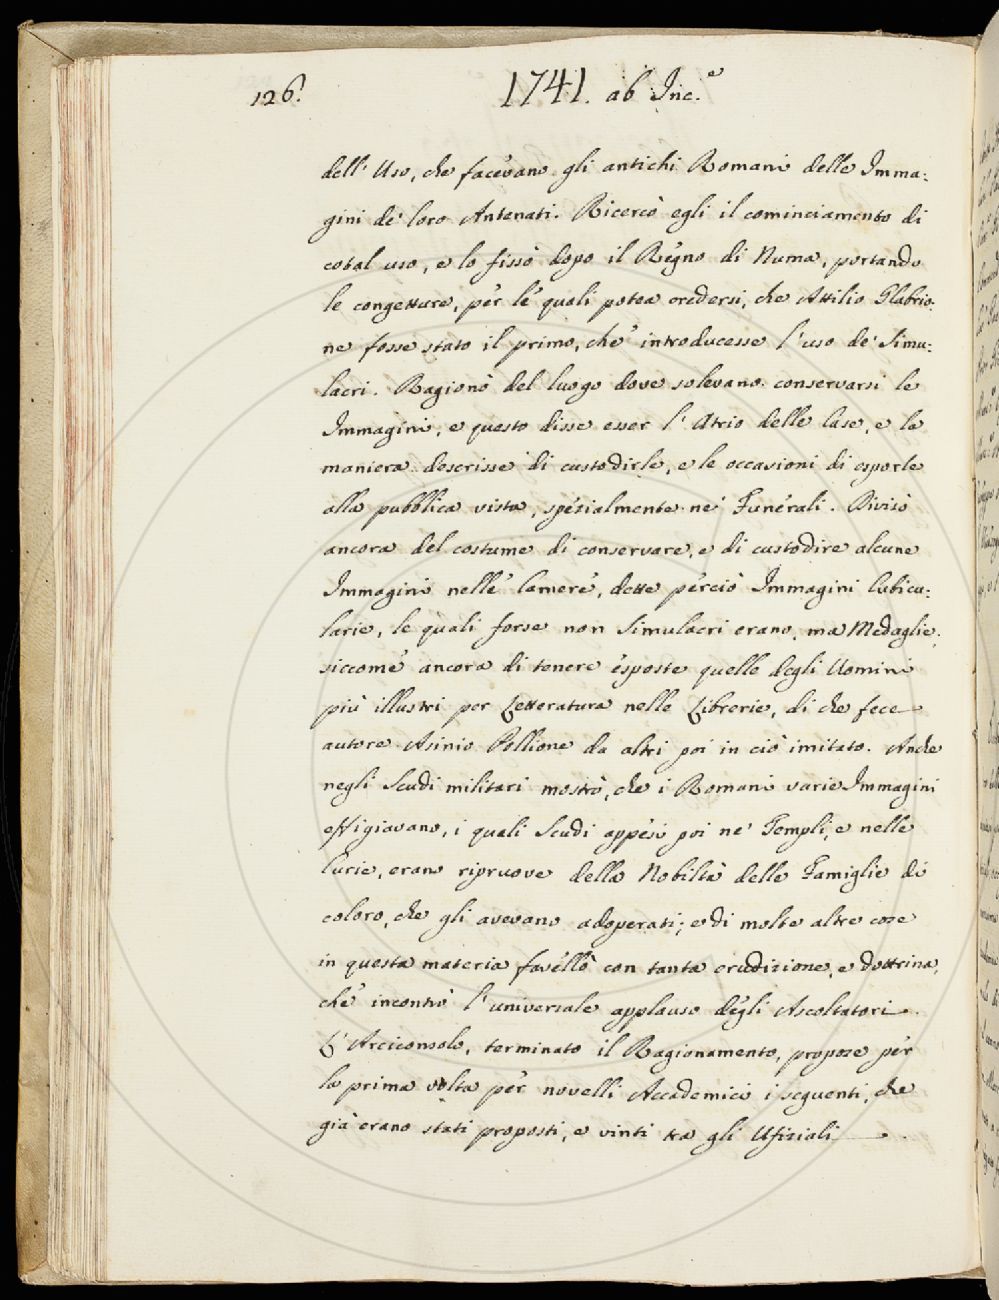 126.
1741. ab Inc.e
dell' Uso, che facevano gli antichi Romani delle Imma:
gini de' loro Antenati. Ricercò egli il cominciamento di
cotal uso, e lo fissò dopo il Regno di Numa, portando
le congetture, per le quali potea credersi, che Attilio Glabrio:
ne fosse stato il primo, che introducesse l'uso de' Simu:
lacri. Ragionò del luogo dove solevano conservarsi le
Immagini, e questo disse esser l'Atrio delle Case, e la
maniera descrisse di custodirle, e le occasioni di esporle
alla pubblica vista, spezialmente ne' Funerali. Divisò
ancora del costume di conservare, e di custodire alcune
Immagini nelle Camere, dette perciò Immagini Cubicu:
larie, le quali forse non Simulacri erano, ma Medaglie,
siccome ancora di tenere esposte quelle degli Uomini
più illustri per Letteratura nelle Librerie, di che fece
autore Asinio Pollione da altri poi in ciò imitato. Anche
negli Scudi militari mostrò, che i Romani varie Immagini
effigiavano, i quali Scudi appesi poi ne' Templi, e nelle
Curie, erano ripruove della Nobiltà delle Famiglie di
coloro, che gli avevano adoperati; e di molte altre cose
in questa materia favellò con tanta erudizione, e dottrina,
che incontrò l'universale applauso degli Ascoltatori.
L'Arciconsolo, terminato il Ragionamento, propose per
la prima volta per novelli Accademici i seguenti, che
già erano stati proposti, e vinti tra gli Ufiziali